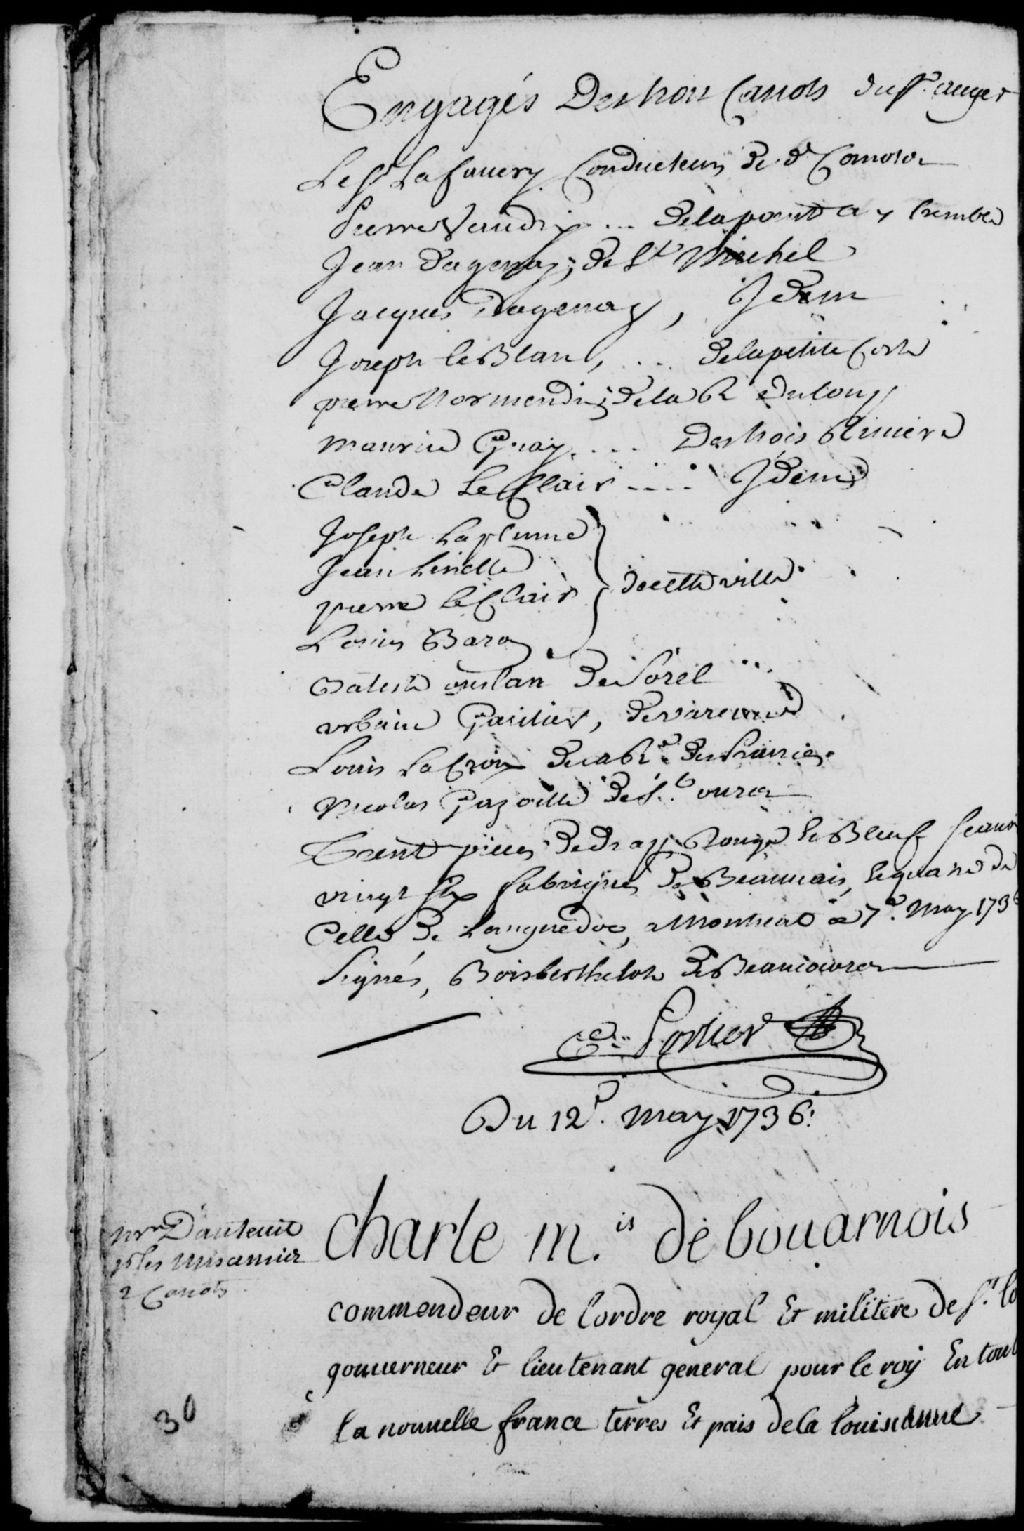 Engagés Des trois Canots du Sr. auger
Le Sr. Lafauery Conducteur de d. Canots
Pierre Vaudry ... de la pointe a y tremble
Jean Dagenay, de St Michel
Jacques Dagenay, Idem
Joseph le Blan, ... de la petite Coste
pierre Normendin; de la R du Loup
Maurice Guay .... Des trois Riviere
Claude Le Clair ..... Idem
Joseph Laplume
Jean
pierre le Clair } de cette ville
Louis Baro
Batiste De Sorel
urbain Gautier, de varenne
Louis La Croix de la Rr. des Prairies
Nicolas de St. ours
Trente pieces de drap Rouge le Bleuf sçauoir
vingt six fabriques de Beauuais, le quatre de
Celle de Languedoc, a Montreal ce 7e. May 1736
Signés, Boisberthelot de Beaucours
C. Porlier
Du 12e. may 1736.
Mrs. D'auteuil
ps les Miscamier
2 Canots
30
Charle m.is de bouarnois
commendeur de l'ordre royal Et militere de St. lo
gouuerneur Et lieutenant general pour le roy En tout
la nouuelle france terres Et pais de la louisianne